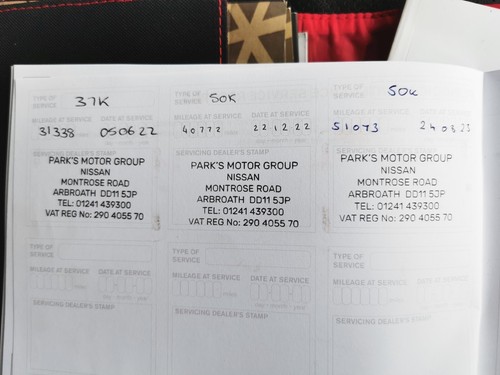 TYPE OF SERVICE 37K
MILEAGE AT SERVICE DATE AT SERVICE
31338 050622
SERVICING DEALER'S STAMP
PARK'S MOTOR GROUP
NISSAN
MONTROSE ROAD
ARBROATH DD11 5JP
TEL: 01241 439300
VAT REG No: 290 4055 70
TYPE OF SERVICE 50K
MILEAGE AT SERVICE DATE AT SERVICE
40772 221222
SERVICING DEALER'S STAMP
PARK'S MOTOR GROUP
NISSAN
MONTROSE ROAD
ARBROATH DD11 5JP
TEL: 01241 439300
VAT REG No: 290 4055 70
TYPE OF SERVICE 50K
MILEAGE AT SERVICE DATE AT SERVICE
51073
SERVICING DEALER'S STAMP
PARK'S MOTOR GROUP
NISSAN
MONTROSE ROAD
ARBROATH DD11 5JP
TEL: 01241 439300
VAT REG No: 290 4055 70
TYPE OF SERVICE
MILEAGE AT SERVICE DATE AT SERVICE
SERVICING DEALER'S STAMP
TYPE OF SERVICE
MILEAGE AT SERVICE DATE AT SERVICE
SERVICING DEALER'S STAMP
TYPE OF SERVICE
MILEAGE AT SERVICE DATE AT SERVICE
SERVICING DEALER'S STAMP